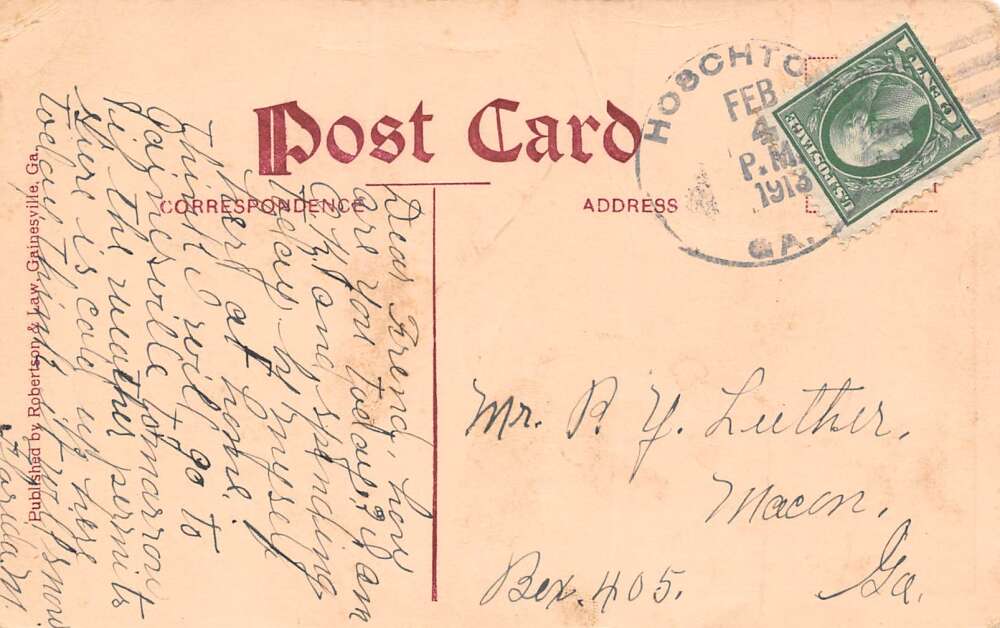 Post Card
CORRESPONDENCE
ADDRESS
HOSCHTO
FEB
4
P.M.
1913
GA.
U.S. POSTAGE
1 CENT
Dear Frend, how
are you today? I am
O.K. and spending
today by myself
her at home.
Think I will go to
Gainesville tomarrow
if the weather permits
there is cold up here
today think it will snow
Mr. B. Y. Luther,
Macon,
Box. 405. Ga.
Published by Robertson & Law, Gainesville, Ga.